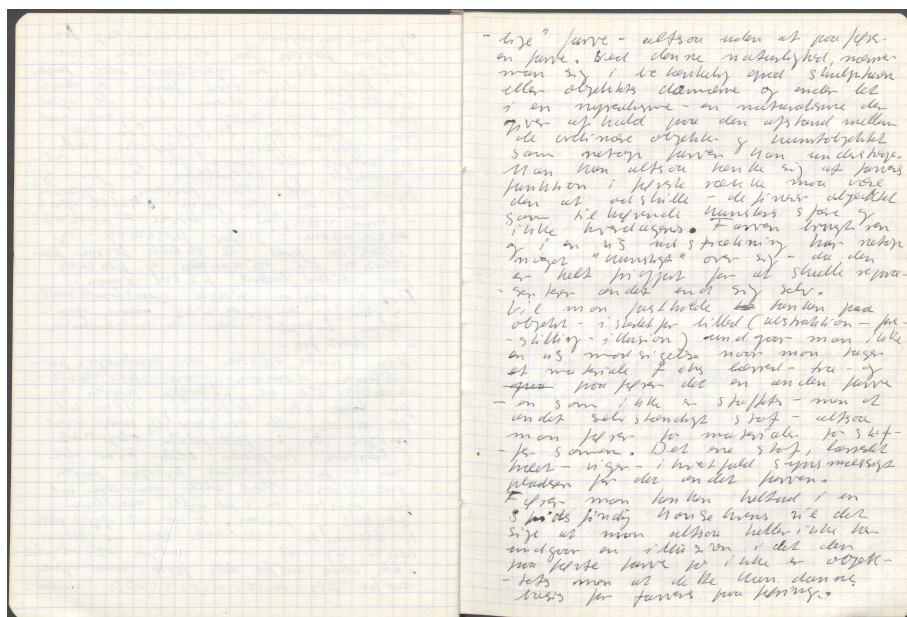 "lige" farve - altsaa uden at paaføre
en farve. Ved denne naturlighed, nærmer
man sig i betænkelig grad skulpturen
eller objektets domæne og ender let
i en nyrealisme - en naturalisme der
giver afkald paa den afstand mellem
de ordinære objekter og kunstobjektet
som netop farven kan understrege.
Man kan altsaa tænke sig at farvens
funktion i første række maa være
den at adskille - definere objektet
som tilhørende kunstens sfære og
ikke hverdagens. Farven brugt ren
og i en vis udstrækning har netop
noget "kunstigt" over sig - da den
er helt frigjort for at skulle repræ-
-sentere andet end sig selv.
Vil man fastholde tanken paa
objekt - istedet for billed (abstraktion - fore-
-stilling - illusion) undgaar man ikke
en vis modsigelse naar man tager
et materiale f eks lærred - træ - og
paafører det en anden farve
- en som ikke er stoffets - men et
andet selvstændigt stof - altsaa
man fører to materialer to stof-
-fer sammen. Det ene stof, lærredet
træet - viger - ihvertfald synsmæssigt
pladsen for det andet farven.
Fører man tanken helt ud i en
spidsfindig konsekvens vil det
sige at man altsaa heller ikke her
undgaar en illusion idet den
paaførte farve jo ikke er objek-
-tets men at dette kun danner
basis for farvens paaføring.